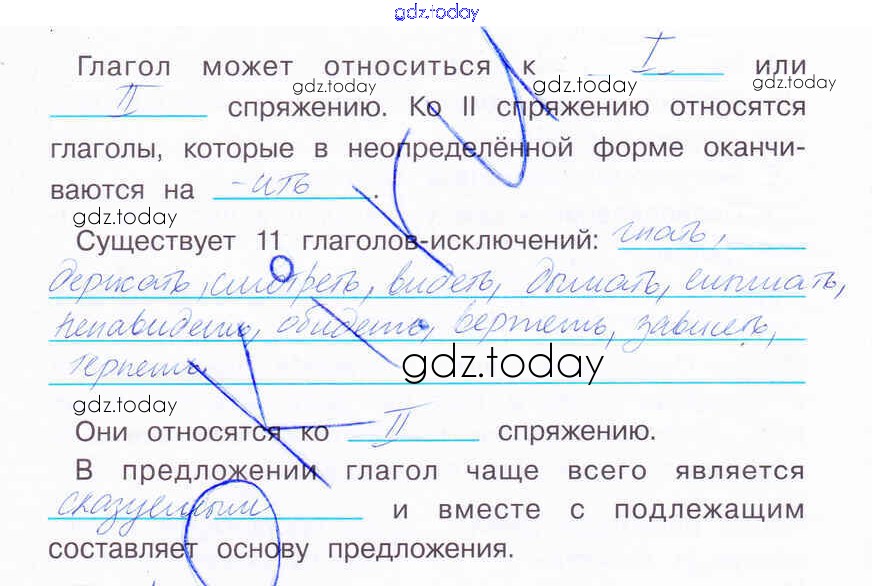 gdz.today
Глагол может относиться к I или
gdz.today gdz.today gdz.today
II спряжению. Ко II спряжению относятся
глаголы, которые в неопределённой форме оканчи-
ваются на -ить.
gdz.today
Существует 11 глаголов-исключений: гнать,
держать, смотреть, видеть, дышать, слышать,
ненавидеть, обидеть, вертеть, зависеть,
терпеть
gdz.today
gdz.today
Они относятся ко II спряжению.
В предложении глагол чаще всего является
сказуемым и вместе с подлежащим
составляет основу предложения.